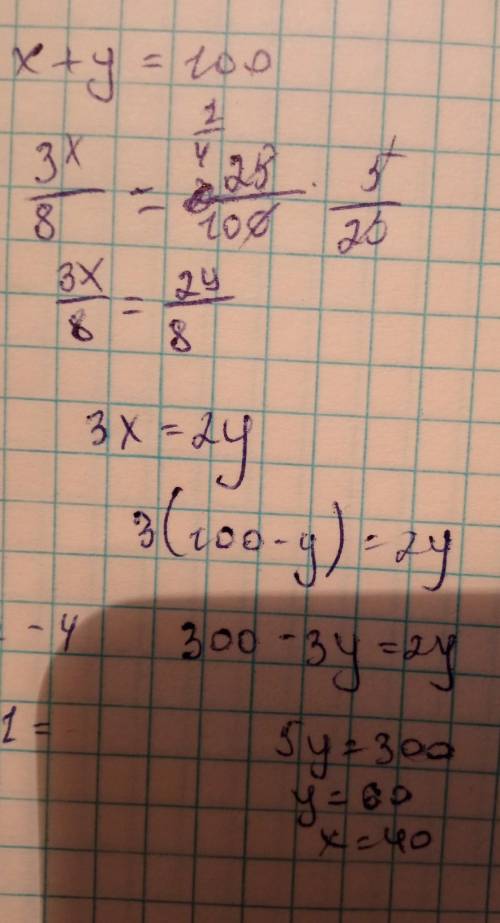 x + y = 100
3x/8 = 25/100 · 5/20
1/4
3x/8 = 2y/8
3x = 2y
3(100 - y) = 2y
- 4
300 - 3y = 2y
1 =
5y = 300
y = 60
x = 40